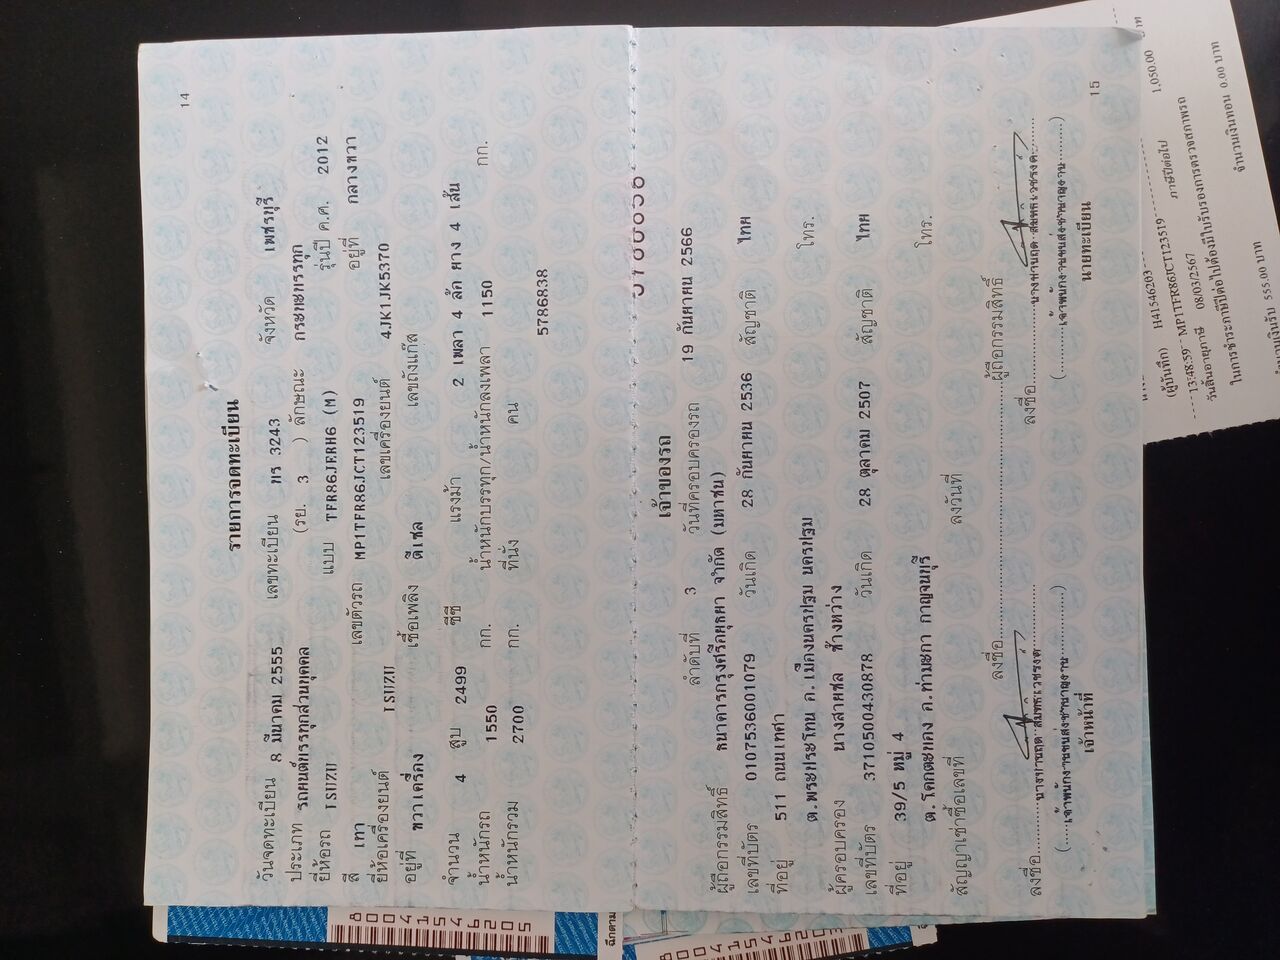 14
รายการจดทะเบียน
วันจดทะเบียน 8 มีนาคม 2555 เลขทะเบียน 3243 จังหวัด เพชรบุรี
ประเภท รถยนต์บรรทุกส่วนบุคคล (รย. 3 ) ลักษณะ กระบะบรรทุก
ยี่ห้อรถ ISUZU แบบ TFR86JERH6 (M) รุ่นปี ค.ศ. 2012
สี เทา เลขตัวรถ MP1TFR86JCT123519 อยู่ที่ กลางขวา
ยี่ห้อเครื่องยนต์ ISUZU เลขเครื่องยนต์ 4JK1JK5370
อยู่ที่ ขวาเครื่อง เชื้อเพลิง ดีเซล เลขถังแก๊ส
จำนวน 4 สูบ 2499 ซีซี แรงม้า 2 เพลา 4 ล้อ ยาง 4 เส้น
น้ำหนักรถ 1550 กก. น้ำหนักบรรทุก/น้ำหนักลงเพลา 1150 กก.
น้ำหนักรวม 2700 กก. ที่นั่ง คน
5786838
เจ้าของรถ
ลำดับที่ 3 วันที่ครอบครองรถ 19 กันยายน 2566
ผู้ถือกรรมสิทธิ์ ธนาคารกรุงศรีอยุธยา จำกัด (มหาชน)
เลขที่บัตร 0107536001079 วันเกิด 28 กันยายน 2536 สัญชาติ ไทย
ที่อยู่ 511 ถนนเทศา โทร.
ต.พระประโทน อ.เมืองนครปฐม นครปฐม
ผู้ครอบครอง นางสายชล ช้างหว่าง
เลขที่บัตร 3710500430878 วันเกิด 28 ตุลาคม 2507 สัญชาติ ไทย
ที่อยู่ 39/5 หมู่ 4 โทร.
ต.โคกตะบอง อ.ท่ามะกา กาญจนบุรี
สัญญาเช่าซื้อเลขที่ ลงวันที่
ลงชื่อ ผู้ถือกรรมสิทธิ์
ลงชื่อ ลงชื่อ
(เจ้าพนักงานขนส่งชำนาญงาน) (เจ้าพนักงานขนส่งชำนาญงาน)
เจ้าหน้าที่ นายทะเบียน
15
1,050.00 บาท
(ผู้บันทึก) H41546203
13:48:59 - MP1TFR86JCT123519 ภาษีปีต่อไป
วันสิ้นอายุภาษี 08/03/2567
ในการชำระภาษีปีต่อไปต้องมีใบรับรองการตรวจสภาพรถ
555.00 บาท จำนวนเงินทอน 0.00 บาท